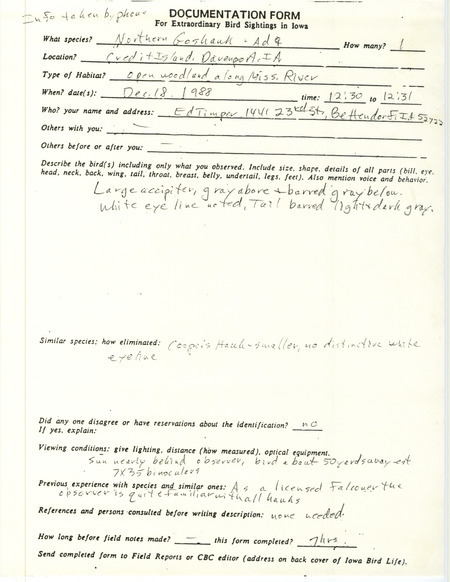 Info taken by phone
DOCUMENTATION FORM
For Extraordinary Bird Sightings in Iowa
What species? Northern Goshawk - Ad ♀ How many? 1
Location? Credit Island, Davenport, IA
Type of Habitat? open woodland along Miss. River
When? date(s): Dec. 18, 1988 time: 12:30 to 12:31
Who? your name and address: Ed Timper 1441 23rd St, Bettendorf, IA 52722
Others with you: —
Others before or after you: —
Describe the bird(s) including only what you observed. Include size, shape, details of all parts (bill, eye,
head, neck, back, wing, tail, throat, breast, belly, undertail, legs, feet). Also mention voice and behavior.
Large accipiter, gray above + barred gray below.
White eye line noted, Tail barred light + dark gray.
Similar species; how eliminated: Cooper's Hawk - smaller, no distinctive white
eyeline
Did any one disagree or have reservations about the identification? no
If yes, explain:
Viewing conditions: give lighting, distance (how measured), optical equipment.
Sun nearly behind observer, bird about 50 yards away - est
7X35 binoculars
Previous experience with species and similar ones: As a licensed Falconer the
observer is quite familiar with all hawks
References and persons consulted before writing description: none needed
How long before field notes made? — this form completed? 7 hrs.
Send completed form to Field Reports or CBC editor (address on back cover of Iowa Bird Life).